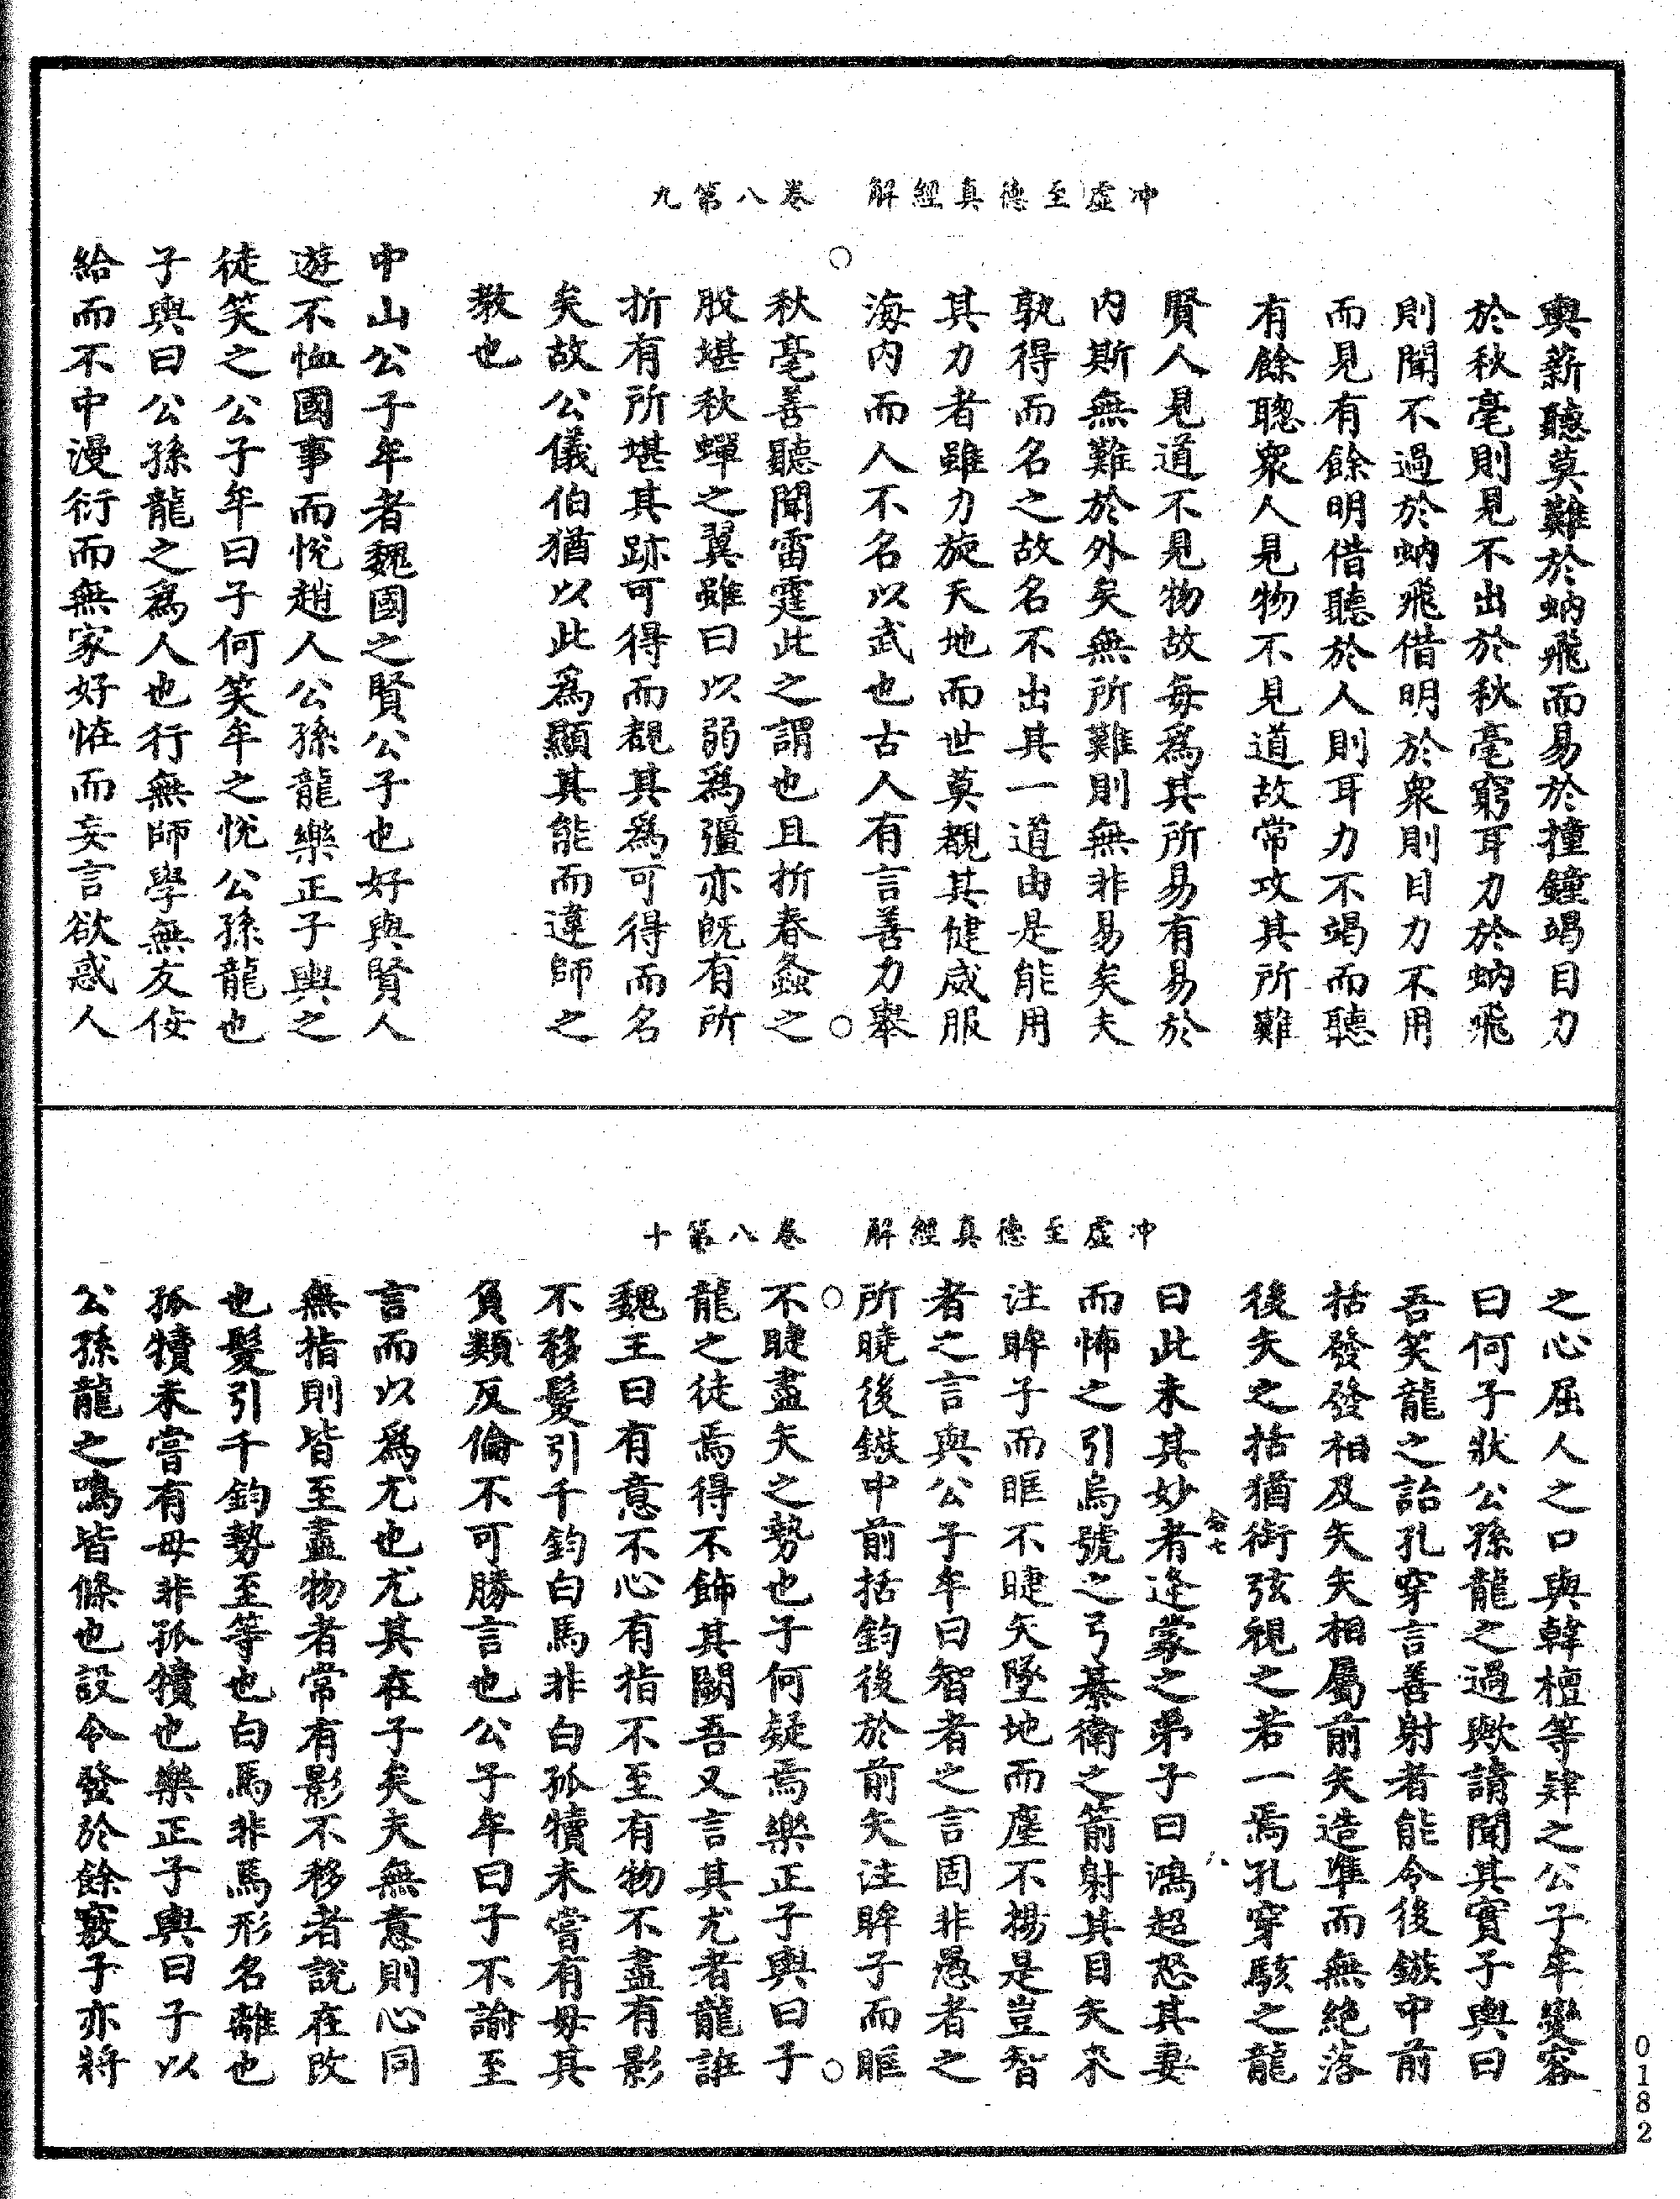 冲虛至德真經解　卷八第九
輿薪聽莫難於蚋飛而易於撞鐘竭目力
於秋毫則見不出於秋毫窮耳力於蚋飛
則聞不過於蚋飛借明於衆則目力不用
而見有餘明借聽於人則耳力不竭而聽
有餘聰衆人見物不見道故常攻其所難
賢人見道不見物故每爲其所易有易於
内斯無難於外矣無所難則無非易矣夫
孰得而名之故名不出其一道由是能用
其力者雖力旋天地而世莫覩其健威服
海内而人不名以武也古人有言善力舉
秋毫善聽聞雷霆此之謂也且折春螽之
股堪秋蟬之翼雖曰以弱爲彊亦旣有所
折有所堪其跡可得而覩其爲可得而名
矣故公儀伯猶以此爲顯其能而違師之
教也
中山公子牟者魏國之賢公子也好與賢人
遊不恤國事而悅趙人公孫龍樂正子輿之
徒笑之公子牟曰子何笑牟之悅公孫龍也
子輿曰公孫龍之爲人也行無師學無友佞
給而不中漫衍而無家好恠而妄言欲惑人
冲虛至德真經解　卷八第十
之心屈人之口與韓檀等肄之公子牟變容
曰何子狀公孫龍之過歟請聞其實子輿曰
吾笑龍之詒孔穿言善射者能令後鏃中前
括發發相及矢矢相屬前矢造準而無絶落
後矢之括猶銜弦視之若一焉孔穿駭之龍
曰此未其妙者逄蒙之弟子曰鴻超怒其妻
而怖之引烏號之弓綦衛之箭射其目矢來
注眸子而眶不睫矢墜地而塵不揚是豈智
者之言與公子牟曰智者之言固非愚者之
所曉後鏃中前括鈞後於前矢注眸子而眶
不睫盡矢之勢也子何疑焉樂正子輿曰子
龍之徒焉得不飾其闕吾又言其尤者龍誑
魏王曰有意不心有指不至有物不盡有影
不移髮引千鈞白馬非白孤犢未嘗有母其
負類反倫不可勝言也公子牟曰子不諭至
言而以爲尤也尤其在子矣夫無意則心同
無指則皆至盡物者常有影不移者說在改
也髮引千鈞勢至等也白馬非馬形名離也
孤犢未嘗有母非孤犢也樂正子輿曰子以
公孫龍之鳴皆條也設令發於餘竅子亦將
0182